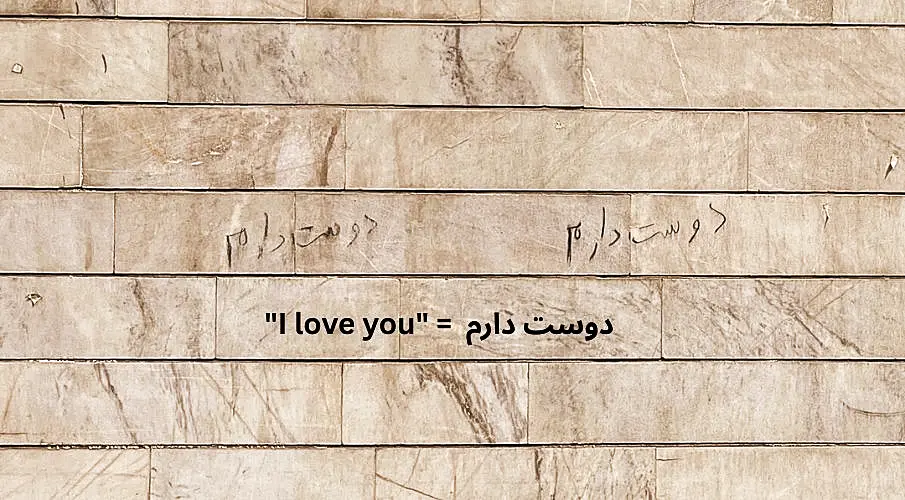 دوست دارم دوست دارم
"I love you" = دوست دارم